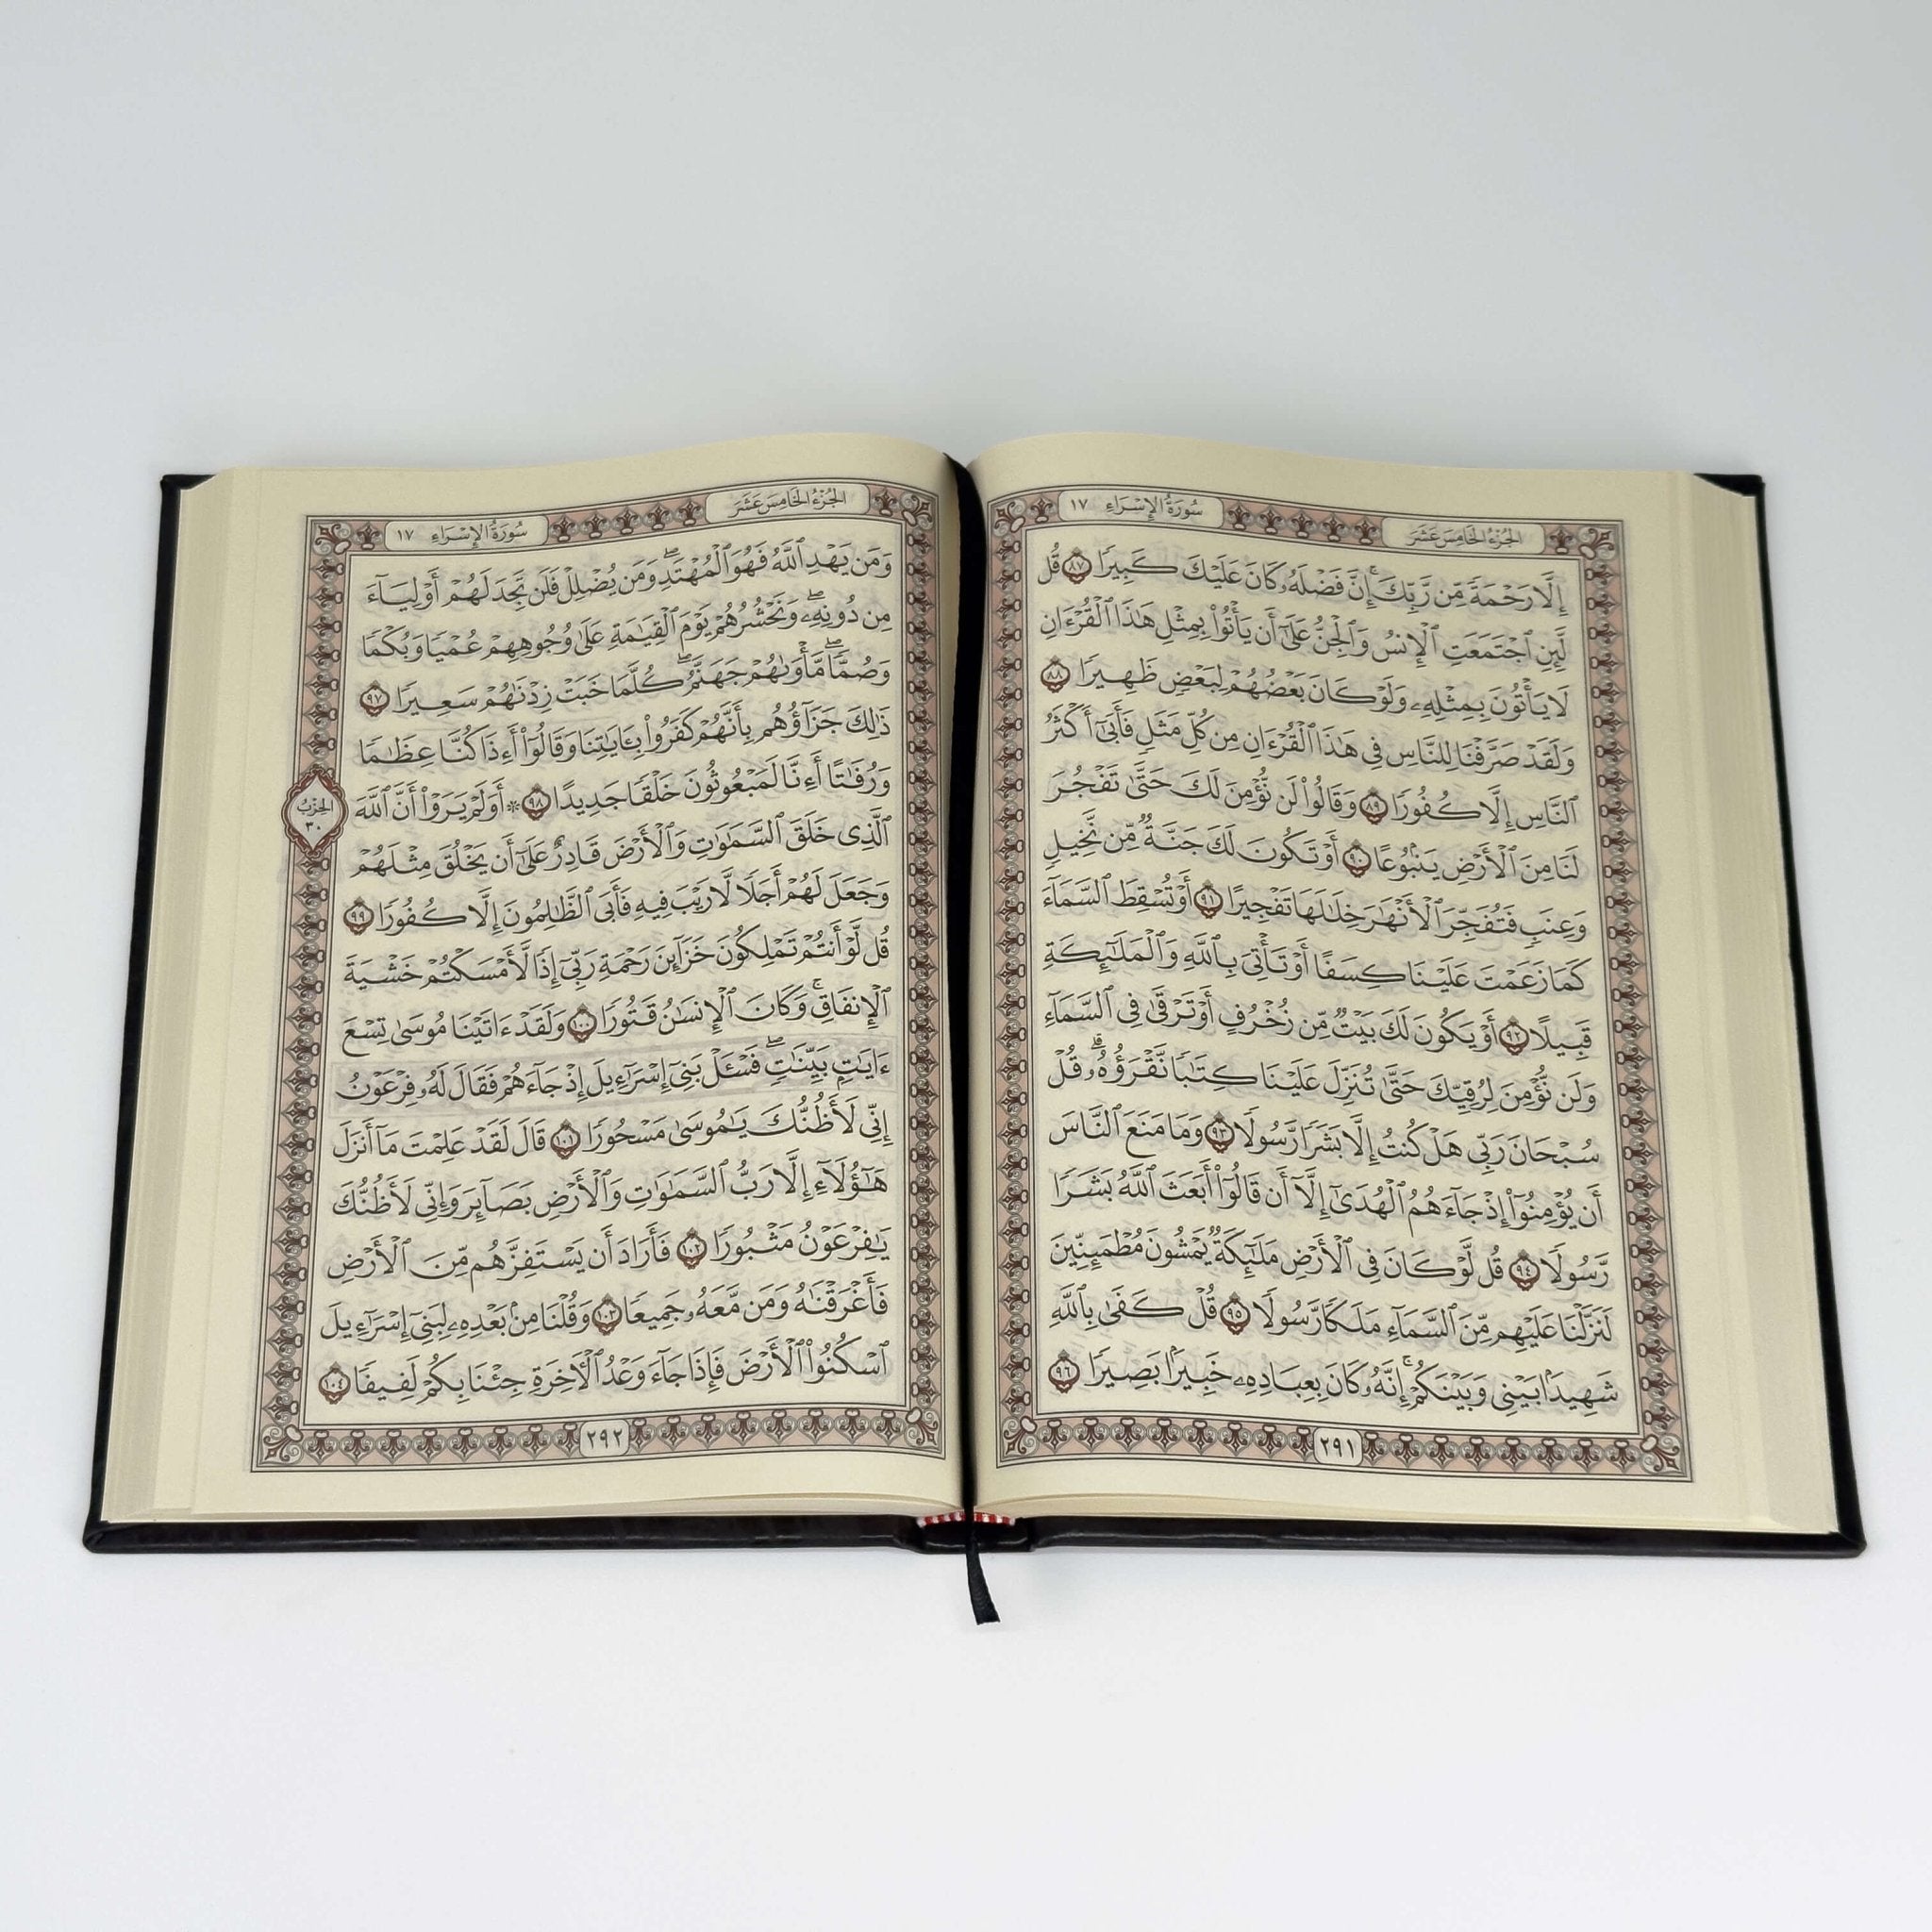 سُورَةُ الإِسْرَاءِ ١٧
الجُزْءُ الخَامِسَ عَشَرَ
إِلَّا رَحْمَةً مِّن رَّبِّكَ ۚ إِنَّ فَضْلَهُۥ كَانَ عَلَيْكَ كَبِيرًا ٨٧ قُل
لَّئِنِ ٱجْتَمَعَتِ ٱلْإِنسُ وَٱلْجِنُّ عَلَىٰٓ أَن يَأْتُوا۟ بِمِثْلِ هَٰذَا ٱلْقُرْءَانِ
لَا يَأْتُونَ بِمِثْلِهِۦ وَلَوْ كَانَ بَعْضُهُمْ لِبَعْضٍ ظَهِيرًا ٨٨
وَلَقَدْ صَرَّفْنَا لِلنَّاسِ فِى هَٰذَا ٱلْقُرْءَانِ مِن كُلِّ مَثَلٍ فَأَبَىٰٓ أَكْثَرُ
ٱلنَّاسِ إِلَّا كُفُورًا ٨٩ وَقَالُوا۟ لَن نُّؤْمِنَ لَكَ حَتَّىٰ تَفْجُرَ
لَنَا مِنَ ٱلْأَرْضِ يَنۢبُوعًا ٩٠ أَوْ تَكُونَ لَكَ جَنَّةٌ مِّن نَّخِيلٍ
وَعِنَبٍ فَتُفَجِّرَ ٱلْأَنْهَٰرَ خِلَٰلَهَا تَفْجِيرًا ٩١ أَوْ تُسْقِطَ ٱلسَّمَآءَ
كَمَا زَعَمْتَ عَلَيْنَا كِسَفًا أَوْ تَأْتِىَ بِٱللَّهِ وَٱلْمَلَٰٓئِكَةِ
قَبِيلًا ٩٢ أَوْ يَكُونَ لَكَ بَيْتٌ مِّن زُخْرُفٍ أَوْ تَرْقَىٰ فِى ٱلسَّمَآءِ
وَلَن نُّؤْمِنَ لِرُقِيِّكَ حَتَّىٰ تُنَزِّلَ عَلَيْنَا كِتَٰبًا نَّقْرَؤُهُۥ ۗ قُلْ
سُبْحَانَ رَبِّى هَلْ كُنتُ إِلَّا بَشَرًا رَّسُولًا ٩٣ وَمَا مَنَعَ ٱلنَّاسَ
أَن يُؤْمِنُوٓا۟ إِذْ جَآءَهُمُ ٱلْهُدَىٰٓ إِلَّآ أَن قَالُوٓا۟ أَبَعَثَ ٱللَّهُ بَشَرًا
رَّسُولًا ٩٤ قُل لَّوْ كَانَ فِى ٱلْأَرْضِ مَلَٰٓئِكَةٌ يَمْشُونَ مُطْمَئِنِّينَ
لَنَزَّلْنَا عَلَيْهِم مِّنَ ٱلسَّمَآءِ مَلَكًا رَّسُولًا ٩٥ قُلْ كَفَىٰ بِٱللَّهِ
شَهِيدًۢا بَيْنِى وَبَيْنَكُمْ ۚ إِنَّهُۥ كَانَ بِعِبَادِهِۦ خَبِيرًۢا بَصِيرًا ٩٦
٢٩١
الجُزْءُ الخَامِسَ عَشَرَ
سُورَةُ الإِسْرَاءِ ١٧
وَمَن يَهْدِ ٱللَّهُ فَهُوَ ٱلْمُهْتَدِ ۖ وَمَن يُضْلِلْ فَلَن تَجِدَ لَهُمْ أَوْلِيَآءَ
مِن دُونِهِۦ ۖ وَنَحْشُرُهُمْ يَوْمَ ٱلْقِيَٰمَةِ عَلَىٰ وُجُوهِهِمْ عُمْيًا وَبُكْمًا
وَصُمًّا ۖ مَّأْوَىٰهُمْ جَهَنَّمُ ۖ كُلَّمَا خَبَتْ زِدْنَٰهُمْ سَعِيرًا ٩٧
ذَٰلِكَ جَزَآؤُهُم بِأَنَّهُمْ كَفَرُوا۟ بِـَٔايَٰتِنَا وَقَالُوٓا۟ أَءِذَا كُنَّا عِظَٰمًا
وَرُفَٰتًا أَءِنَّا لَمَبْعُوثُونَ خَلْقًا جَدِيدًا ٩٨ * أَوَلَمْ يَرَوْا۟ أَنَّ ٱللَّهَ
ٱلَّذِى خَلَقَ ٱلسَّمَٰوَٰتِ وَٱلْأَرْضَ قَادِرٌ عَلَىٰٓ أَن يَخْلُقَ مِثْلَهُمْ
وَجَعَلَ لَهُمْ أَجَلًا لَّا رَيْبَ فِيهِ فَأَبَى ٱلظَّٰلِمُونَ إِلَّا كُفُورًا ٩٩
قُل لَّوْ أَنتُمْ تَمْلِكُونَ خَزَآئِنَ رَحْمَةِ رَبِّىٓ إِذًا لَّأَمْسَكْتُمْ خَشْيَةَ
ٱلْإِنفَاقِ ۚ وَكَانَ ٱلْإِنسَٰنُ قَتُورًا ١٠٠ وَلَقَدْ ءَاتَيْنَا مُوسَىٰ تِسْعَ
ءَايَٰتٍۭ بَيِّنَٰتٍ ۖ فَسْـَٔلْ بَنِىٓ إِسْرَٰٓءِيلَ إِذْ جَآءَهُمْ فَقَالَ لَهُۥ فِرْعَوْنُ
إِنِّى لَأَظُنُّكَ يَٰمُوسَىٰ مَسْحُورًا ١٠١ قَالَ لَقَدْ عَلِمْتَ مَآ أَنزَلَ
هَٰٓؤُلَآءِ إِلَّا رَبُّ ٱلسَّمَٰوَٰتِ وَٱلْأَرْضِ بَصَآئِرَ وَإِنِّى لَأَظُنُّكَ
يَٰفِرْعَوْنُ مَثْبُورًا ١٠٢ فَأَرَادَ أَن يَسْتَفِزَّهُم مِّنَ ٱلْأَرْضِ
فَأَغْرَقْنَٰهُ وَمَن مَّعَهُۥ جَمِيعًا ١٠٣ وَقُلْنَا مِنۢ بَعْدِهِۦ لِبَنِىٓ إِسْرَٰٓءِيلَ
ٱسْكُنُوا۟ ٱلْأَرْضَ فَإِذَا جَآءَ وَعْدُ ٱلْـَٔاخِرَةِ جِئْنَا بِكُمْ لَفِيفًا ١٠٤
الحِزْبُ
٣٠
٢٩٢